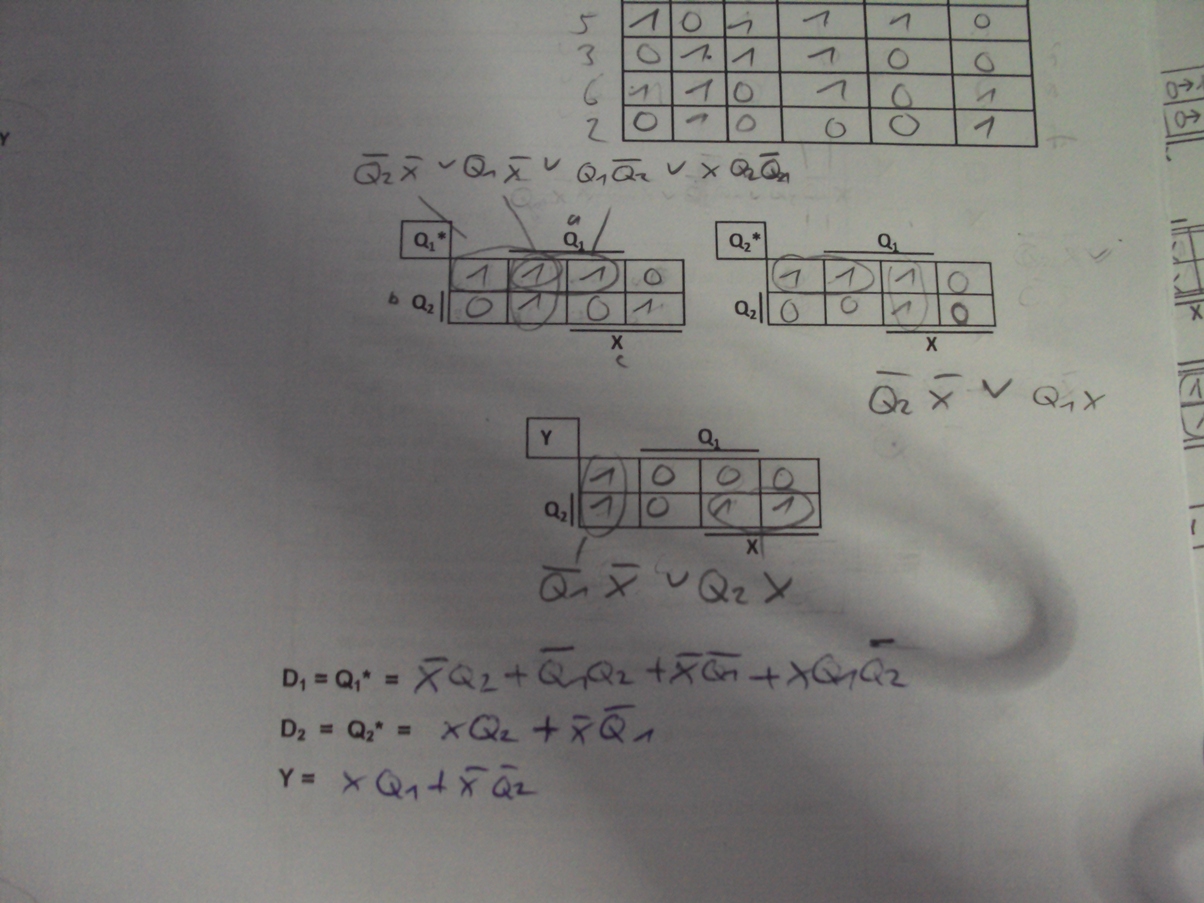 5 1 0 1 1 1 0
3 0 1 1 1 0 0
6 1 1 0 1 0 1
2 0 1 0 0 0 1
Y
Q̅₂ x̅ ∨ Q₁ x̅ ∨ Q₁ Q̅₂ ∨ x Q₂ Q̅₁
a
Q₁* Q₁
1 1 1 0
b Q₂ 0 1 0 1
X
c
Q₂* Q₁
1 1 1 0
Q₂ 0 0 1 0
X
Q̅₂ x̅ ∨ Q₁ x
Y Q₁
1 0 0 0
Q₂ 1 0 1 1
X
Q̅₁ x̅ ∨ Q₂ x
D₁ = Q₁* = x̅ Q₂ + Q̅₁ Q₂ + x̅ Q̅₁ + x Q₁ Q̅₂
D₂ = Q₂* = x Q₂ + x̅ Q̅₁
Y = x Q₁ + x̅ Q̅₂